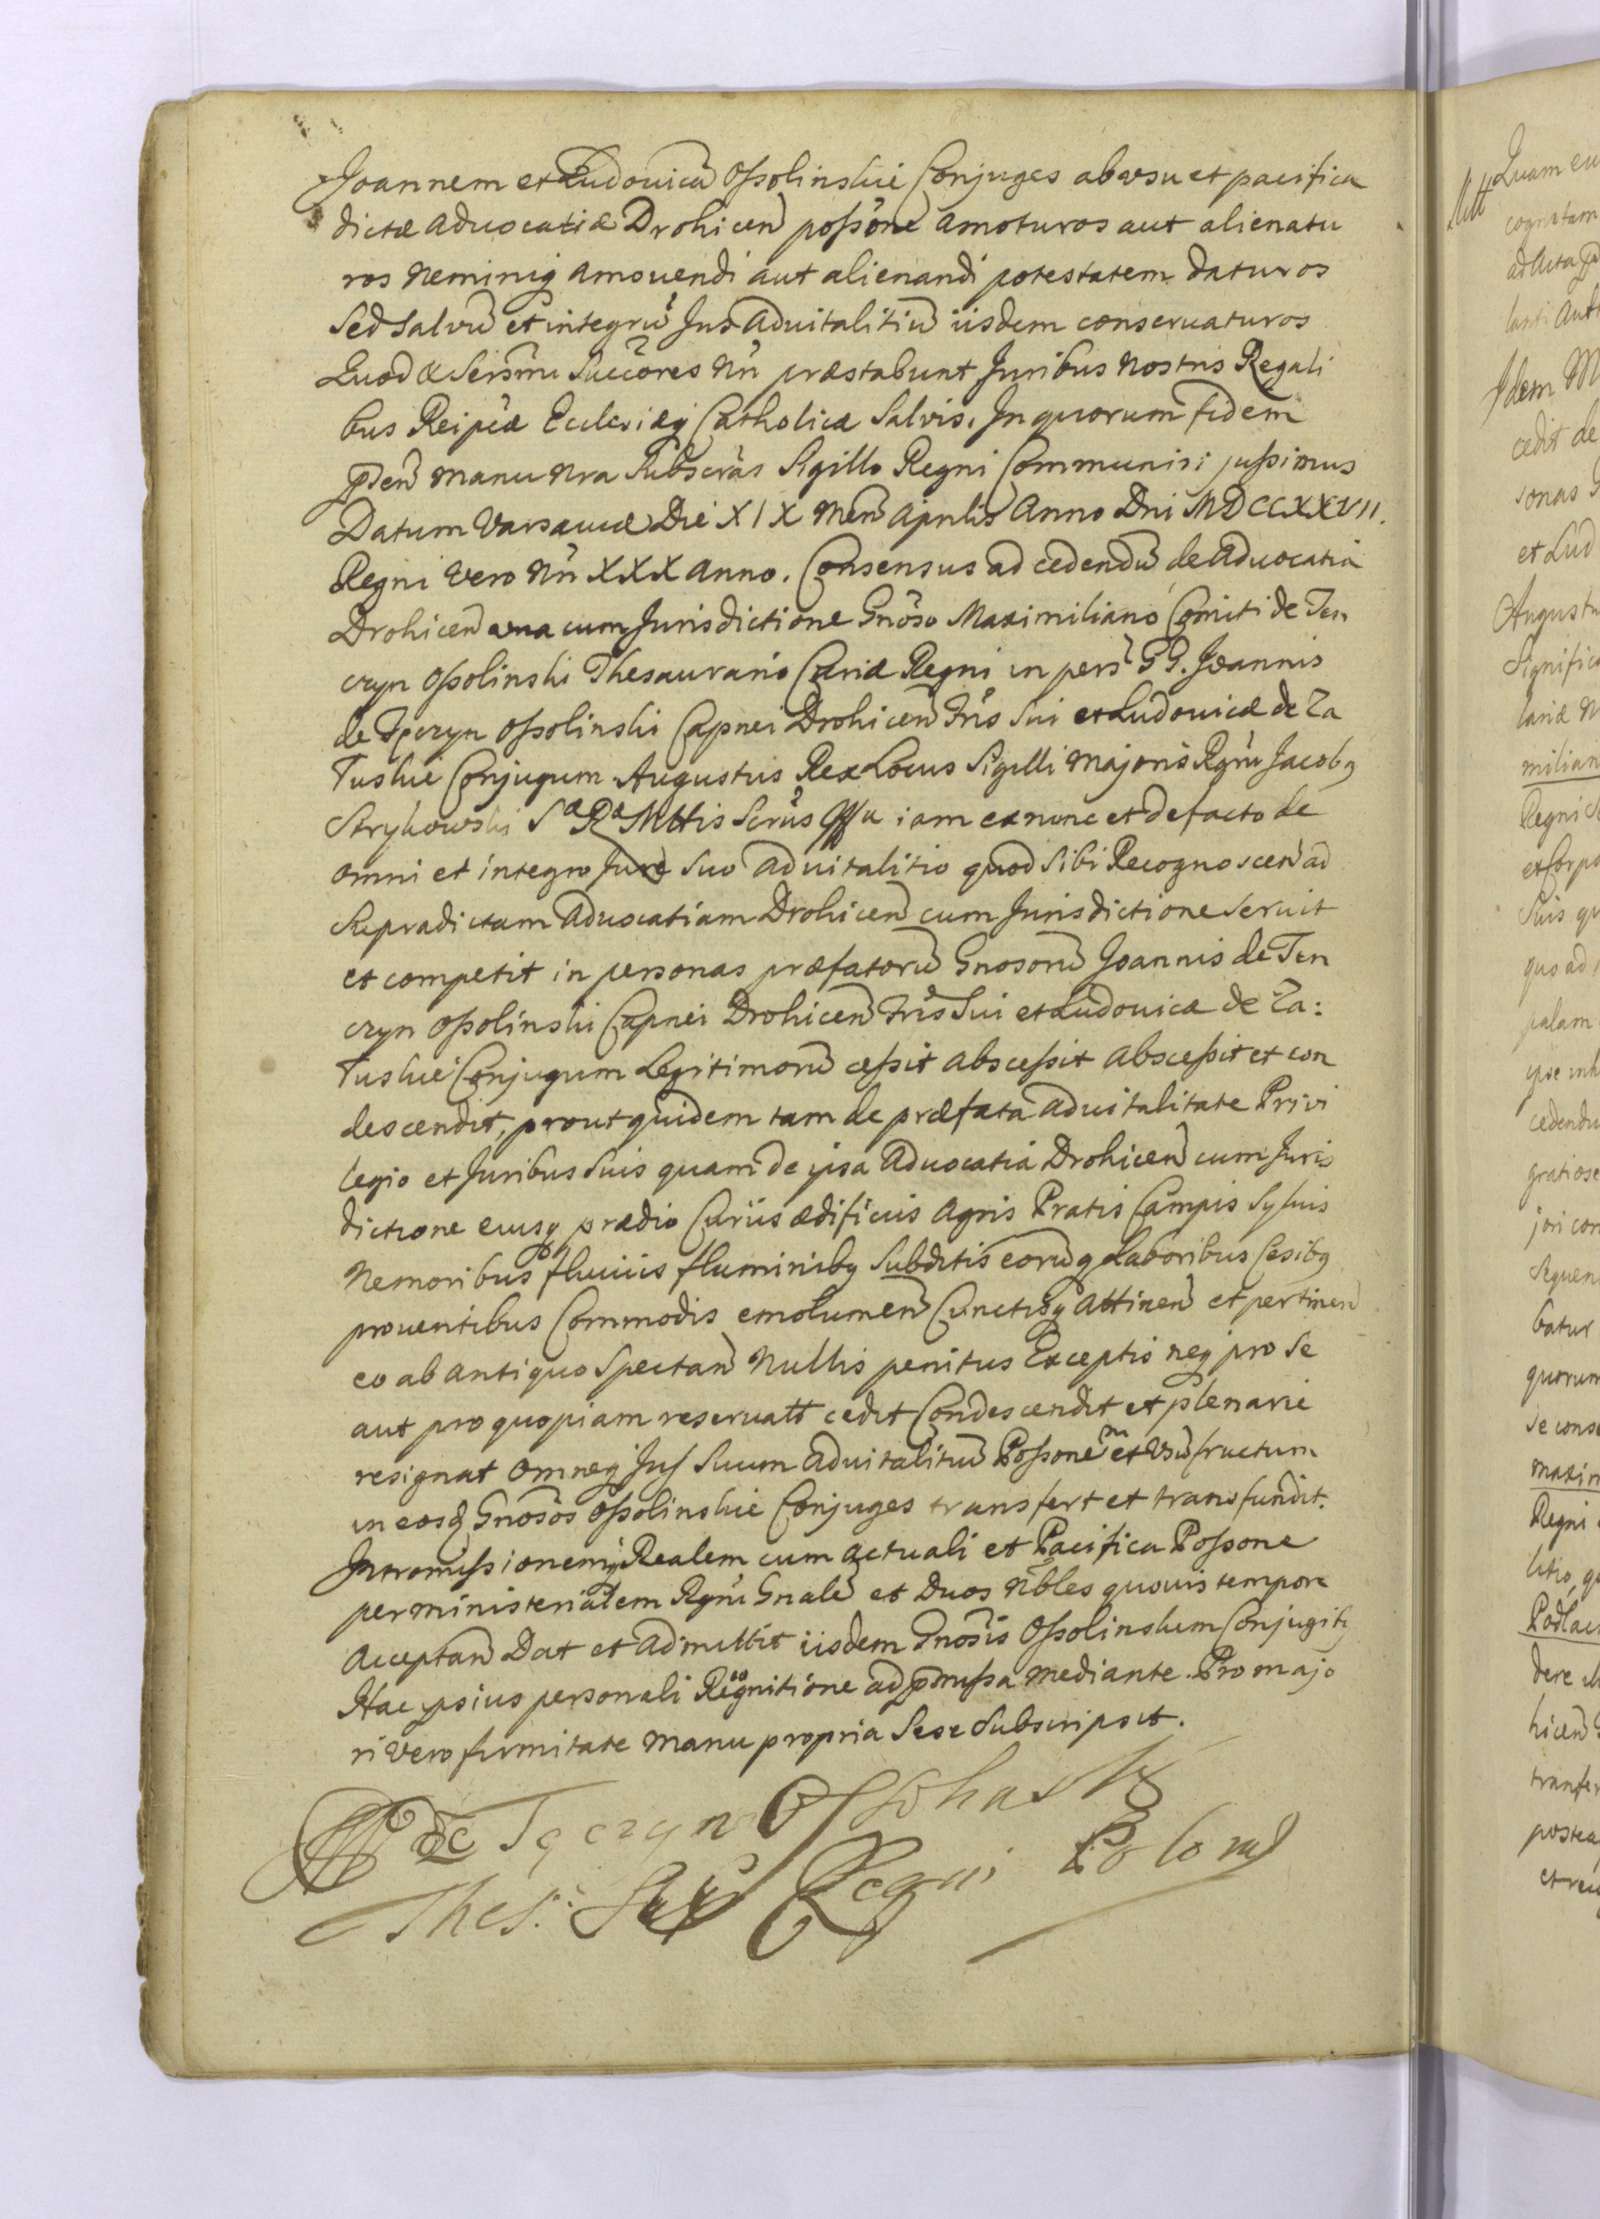 Joannem et Ludovicã Ossolinskie Conjuges ab usu et pacifica
dictæ Advocatiæ Drohicen possõne amoturos aut alienatu
ros Neminiq amovendi aut alienandi potestatem daturos
Sed Salvũ et integrũ Jus Advitalitiũ iisdem conservaturos
Quod & Serẽmi Succẽores Nri præstabunt Juribus Nostris Regali
bus Reipcæ Ecclesiæq Catholicæ Salvis. In quorum fidem
pñsen manu Nra Subscrãs Sigillo Regni Communiri jussimus
Datum Varsaviæ Die XIX Men Aprilis Anno Dni MDCCXXVII.
Regni Vero Nri XXX Anno. Consensus ad cedendũ de Advocatia
Drohicen una cum Jurisdictione Gnõso Maximiliano Comiti de Ten
czyn Ossolinski Thesaurario Curiæ Regni in pers GG. Joannis
de Tęczyn Ossolinski Capnei Drohicen Fris Sui et Ludovicæ de Za
łuskie Conjugum Augustus Rex Locus Sigilli Majoris Rgni Jacobq
Strykowski Sæ Ræ Mttis Scrũs
iam ex nunc et de facto de
omni et integro Jure Suo Advitalitio quod Sibi Recognoscen ad
Supradictam Advocatiam Drohicen cum Jurisdictione Servit
et competit in personas præfatorũ Gnosorũ Joannis de Ten
czyn Ossolinski Capnei Drohicen Fris Sui et Ludovicæ de Za:
łuskie Conjugum Legitimorũ cessit abscessit abscessit et con
descendit, prout quidem tam de præfata Advitalitate Privi
legio et Juribus Suis quam de ipsa Advocatia Drohicen cum Juris
dictione eiusq prædio Curiis ædificiis Agris Pratis Campis Sylvis
Nemoribus fluviis fluminibq Subditis eorũq Laboribus Cesibq
proventibus Commodis emolumen Cunctisq Attinen et pertinen
eo ab antiquo Spectan Nullis penitus Exceptis neq pro Se
aut pro quopiam reservatt cedit Condescendit et plenarie
resignat Omneq Jus Suum Advitalitiũ Possonem et Usũfructum
in eosq Gnosõs Ossolinskie Conjuges transfert et transfundit.
Intromissionemq Realem cum actuali et Pacifica Possone
per ministerialem Rgni Gnalẽ et Duos Nbles quovis tempore
Acceptan Dat et Admittit iisdem Gnosis Ossolinskim Conjugibq
Hac ipsius personali Recognitione ad pmissa mediante. Pro majo
ri Vero firmitate manu propria Sese Subscripsit.
de Tęczyn Ossoliński
Thes: Regni Polon
Quam
cognatam
ad Acta
Idem M
cedit de
sonas G
et Lud
Augustu
Significa
milian
Regni
et Corpo
Suis qu
quo ad
palam
cedendu
gratiose
jori con
Sequen
batur
quorum
se cons
maxim
Regni
litio, q
Podlac
hicen
transfer
postea